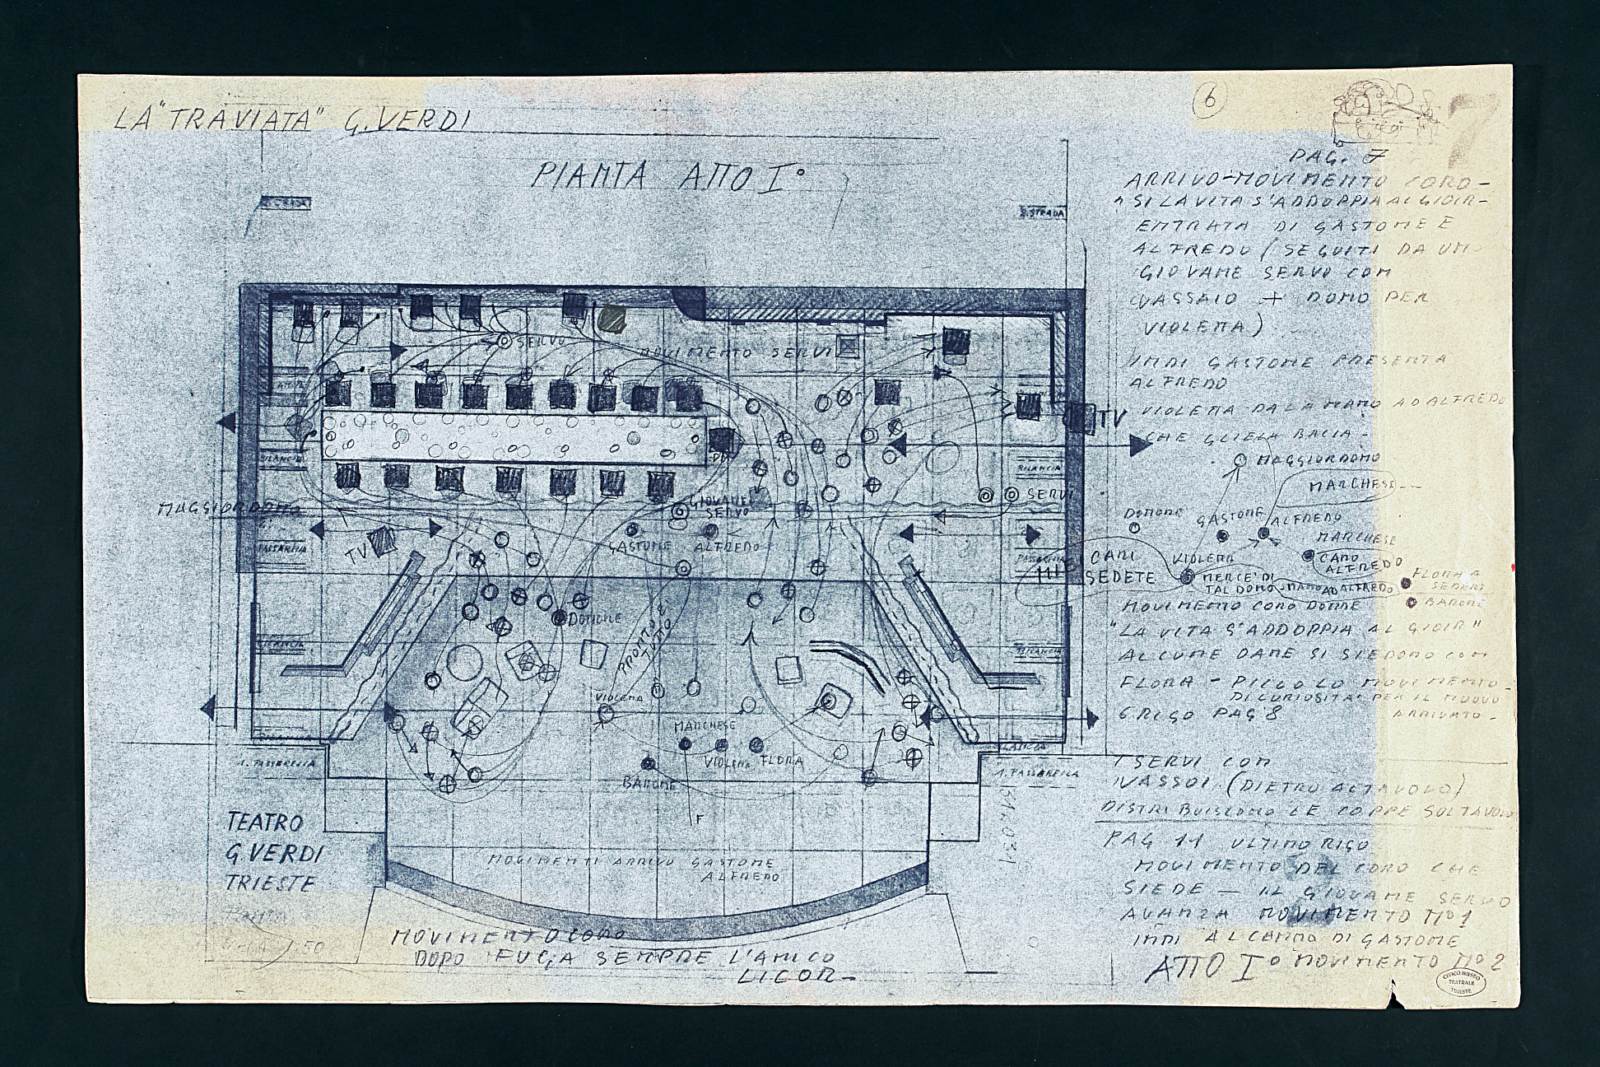 LA "TRAVIATA" G. VERDI
6
7
PIANTA ATTO I°
STRADA
SERVO
MOVIMENTO SERVI
TV
BILANCIA
BILANCIA
SERVI
MAGGIORDOMO
GIOVANE
SERVO
GASTONE ALFREDO
PASSARELLA
TV
DOTTORE
PRONTO È
TUTTO
BILANCIA
BILANCIA
VIOLETTA
MARCHESE
VIOLETTA FLORA
BARONE
F
BILANCIA
1. PASSARELLA
1. PASSARELLA
TEATRO
G. VERDI
TRIESTE
PIANTA
1:50
MOVIMENTI ARRIVO GASTONE
ALFREDO
MOVIMENTO CORO
DOPO FUGA SEMPRE L'AMICO
LICOR-
PAG. 7
ARRIVO-MOVIMENTO CORO-
"SI LA VITA S'ADDOPPIA AL GIOIR-
ENTRATA DI GASTONE E
ALFREDO (SEGUITI DA UN
GIOVANE SERVO CON
VASSAIO + DONO PER
VIOLETTA)
INDI GASTONE PRESENTA
ALFREDO
VIOLETTA DA LA MANO AD ALFREDO
CHE GLIELA BACIA-
MAGGIORDOMO
MARCHESE
DOTTORE
GASTONE ALFREDO
MARCHESE
CARO
ALFREDO
MIEI CARI
SEDETE
VIOLETTA
MERCE' DI
TAL DONO
MANO AD ALFREDO
FLORA A
SEDERE
BARONE
MOVIMENTO CORO DONNE
"LA VITA S'ADDOPPIA AL GIOIR"
ALCUNE DAME SI SIEDONO CON
FLORA - PICCOLO MOVIMENTO
DI CURIOSITA' PER IL NUOVO
ARRIVATO-
6 RIGO PAG 8
I SERVI CON
VASSOI (DIETRO AL TAVOLO)
DISTRIBUISCONO LE COPPE SUL TAVOLO
PAG 11 ULTIMO RIGO
MOVIMENTO DEL CORO CHE
SIEDE - IL GIOVANE SERVO
AVANZA MOVIMENTO N°1
INDI AL CENNO DI GASTONE
MOVIMENTO N°2
ATTO I°
CIVICO MUSEO
TEATRALE
TRIESTE